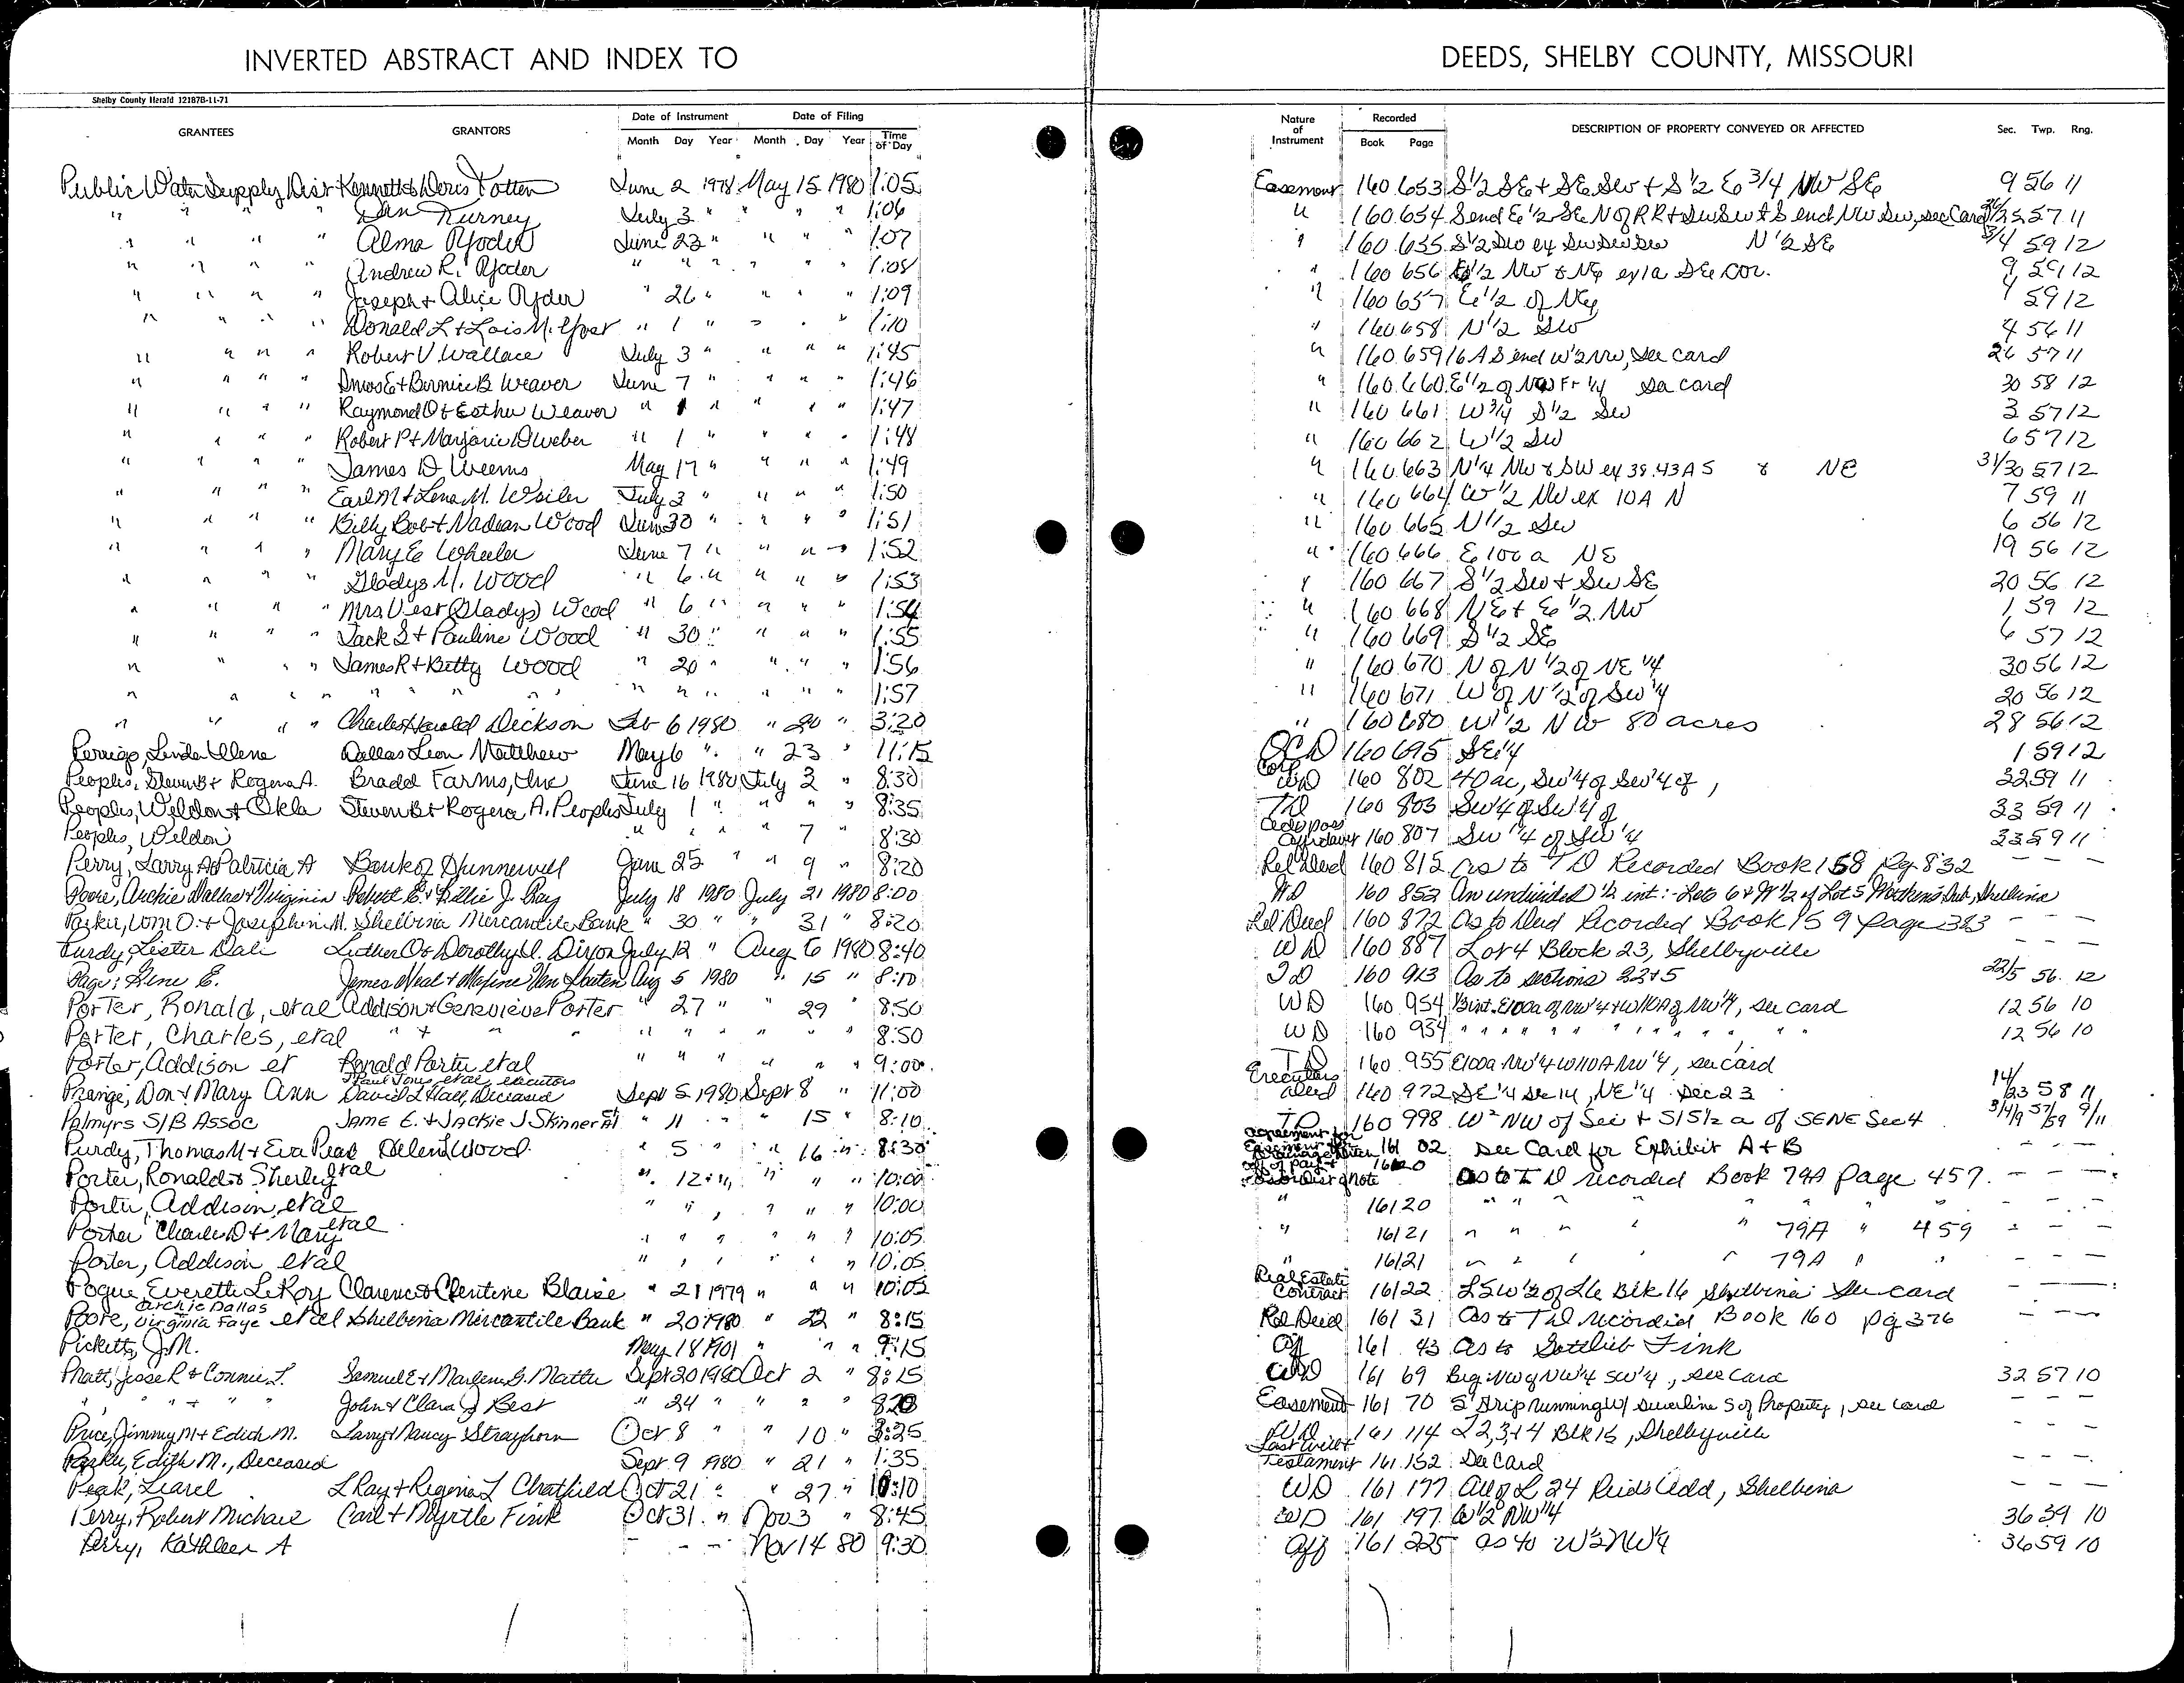 INVERTED ABSTRACT AND INDEX TO DEEDS, SHELBY COUNTY, MISSOURI
Shelby County Herald 12187B-11-71
GRANTEES GRANTORS Date of Instrument Month Day Year Date of Filing Month Day Year Time of Day Nature of Instrument Recorded Book Page DESCRIPTION OF PROPERTY CONVEYED OR AFFECTED Sec. Twp. Rng.
Public Water Supply Dist Kenneth & Doris Totten June 2 1978 May 15 1980 1:05 Easement 160 653 S 1/2 SE + SE SW + S 1/2 E 3/4 NW SE 9 56 11
" " " " Dan Turney July 3 " " " " 1:06 " 160 654 S end E 1/2 SE N of RR + SW SW + S end NW SW, see Card 57 11
" " " " Alma Yoder June 23 " " " " 1:07 " 160 655 S 1/2 SW ex SW SW SW N 1/2 SE 3/4 59 12
" " " " Andrew R. Yoder " " " " " " 1:08 " 160 656 E 1/2 NW & NE ex 1a SE cor. 9 59 12
" " " " Joseph + Alice Yoder " 26 " " " " 1:09 " 160 657 E 1/2 of NE 4 59 12
" " " " Donald L + Lois M. Yost " 1 " " " " 1:10 " 160 658 N 1/2 SW 4 56 11
" " " " Robert V Wallace July 3 " " " " 1:45 " 160 659 16 A S end W 1/2 NW, see card 26 57 11
" " " " Amos E + Bernice B Weaver June 7 " " " " 1:46 " 160 660 E 1/2 of NW Fr 1/4 see card 30 58 12
" " " " Raymond O + Esther Weaver " 1 " " " " 1:47 " 160 661 W 3/4 S 1/2 SW 3 57 12
" " " " Robert P + Marjorie D Weber " 1 " " " " 1:48 " 160 662 W 1/2 SW 6 57 12
" " " " James D. Weems May 17 " " " " 1:49 " 160 663 N 1/4 NW & SW ex 38.43 A S & NE 31/30 57 12
" " " " Earl M + Lena M. Weiler July 3 " " " " 1:50 " 160 664 W 1/2 NW ex 10A N 7 59 11
" " " " Billy Bob + Nadean Wood Jun 30 " " " " 1:51 " 160 665 N 1/2 SW 6 56 12
" " " " Mary E Wheeler June 7 " " " " 1:52 " 160 666 E 100 a NE 19 56 12
" " " " Gladys M. Wood " 6 " " " " 1:53 " 160 667 S 1/2 SW + SW SE 20 56 12
" " " " Mrs Vest (Gladys) Wood " 6 " " " " 1:54 " 160 668 NE + E 1/2 NW 1 59 12
" " " " Jack S + Pauline Wood " 30 " " " " 1:55 " 160 669 S 1/2 SE 6 57 12
" " " " James R + Betty Wood " 20 " " " " 1:56 " 160 670 N of N 1/2 of NE 1/4 30 56 12
" " " " " " " " " " " " " 1:57 " 160 671 W of N 1/2 of SW 1/4 20 56 12
" " " " Charles Harold Dickson Feb 6 1980 " 20 " 3:20 " 160 680 W 1/2 NW 80 acres 28 56 12
Perrigo, Linda Ilene Dallas Leon Matthew May 6 " " 23 " 11:15 QCD 160 695 SE 1/4 1 59 12
Peoples, Steven B + Rogena A. Bradd Farms, Inc June 16 1980 July 2 " 8:30 Corp WD 160 802 40 ac, SW 1/4 of SW 1/4 of , 33 59 11
Peoples, Weldon + Okla Steven B + Rogena A. Peoples July 1 " " " " 8:35 TD 160 803 SW 1/4 of SW 1/4 of 33 59 11
Peoples, Weldon " " " " 7 " 8:30 Affidavit 160 807 SW 1/4 of SW 1/4 33 59 11
Perry, Larry A & Patricia A Bank of Hunnewell June 25 " " 9 " 8:20 Rel Deed 160 815 as to TD Recorded Book 158 Pg 832 — — —
Poore, Archie Dallas + Virginia Robert E. + Lillie J. Ray July 18 1980 July 21 1980 8:00 WD 160 852 An undivided 1/2 int: - Lots 6 + W 1/2 of Lot 5 Sub, Shelbina
Parker, Wm O. + Josephine M. Shelbina Mercantile Bank " 30 " " 31 " 8:20 Rel Deed 160 872 as to Deed Recorded Book 159 Page 383 — — —
Purdy, Lester Dale Luther O + Dorothy U. Dixon July 12 " Aug 6 1980 8:40 WD 160 887 Lot 4 Block 23, Shelbyville — — —
Page, Gene E. James Neal + Maxine Van Houten Aug 5 1980 " 15 " 8:10 TD 160 913 as to sections 22 + 5 22/5 56 12
Porter, Ronald, et al Addison + Genevieve Porter " 27 " " 29 " 8:50 WD 160 954 E100a of NW 1/4 + W110A of NW 1/4, see card 12 56 10
Porter, Charles, et al " + " " " " " " " 8:50 WD 160 954 " " " " " " " " " 12 56 10
Porter, Addison et Ronald Porter et al " " " " " " 9:00 TD 160 955 E100a NW 1/4 W110A NW 1/4, see card
Prange, Don + Mary Ann Paul Jones, et al, executors David L Hall, Deceased Sept 5 1980 Sept 8 " 11:00 Executors deed 160 972 SE 1/4 Sec 14, NE 1/4 Sec 23 14/23 58 11
Palmyrs S/B Assoc JAME E. + Jackie J Skinner " 11 " " 15 " 8:10 TD 160 998 W2 NW of Sec + S 15 1/2 a of SENE Sec 4 3/4/9 57/59 9/11
Purdy, Thomas M + Eva Pearl Helen Wood " 5 " " 16 " 8:30 Agreement for Easement 161 02 See Card for Exhibit A + B — — —
Porter, Ronald & Sherley et al " 12 " " " " 10:00 161 20 as to TD recorded Book 79A Page 457 — — —
Porter, Addison, et al " " " " " " 10:00 " 161 20 " " " " " "
Porter Charles D + Mary et al " " " " " " 10:05 " 161 21 " " " " " 79A " 459 — — —
Porter, Addison et al " " " " " " 10:05 " 161 21 " " " " " 79A " " — — —
Pogue, Everette LeRoy Clarence & Clentine Blaise " 21 1979 " " " 10:05 Real Estate Contract 161 22 L5 W 1/2 of L6 Blk 16 Shelbina See card — — —
Poore, Archie Dallas Virginia Faye et al Shelbina Mercantile Bank " 20 1980 " 22 " 8:15 Rel Deed 161 31 as to TD recorded Book 160 pg 376 — — —
Picketts, J.M. May 18 1901 " " " 9:15 Aff 161 43 as to Gottlieb Fink
Pratt, Jesse R + Connie L. Samuel E + Marlene G. Matter Sept 20 1980 Oct 2 " 8:15 WD 161 69 Beg NW of NW 1/4 SW 1/4, see card 32 57 10
" " " " " John + Clara J Best " 24 " " " " 8:20 Easement 161 70 5' strip running W/ sewerline S of Property, see card — — —
Price, Jimmy M + Edith M. Larry + Nancy Strayhorn Oct 8 " " 10 " 3:25 WD 161 114 L 2,3,+4 Blk 15, Shelbyville — — —
Parker, Edith M., Deceased Sept 9 1980 " 21 " 1:35 Last Will + Testament 161 152 See Card
Peak, Learel L Ray + Regena L Chatfield Oct 21 " " 27 " 10:10 WD 161 177 All of L 24 Reids Add, Shelbina — — —
Perry, Robert Michael Carl + Myrtle Fink Oct 31 " Nov 3 " 8:45 WD 161 197 W 1/2 NW 1/4 36 59 10
Perry, Kathleen A - - - Nov 14 80 9:30 Aff 161 225 as to W 1/2 NW 1/4 36 59 10